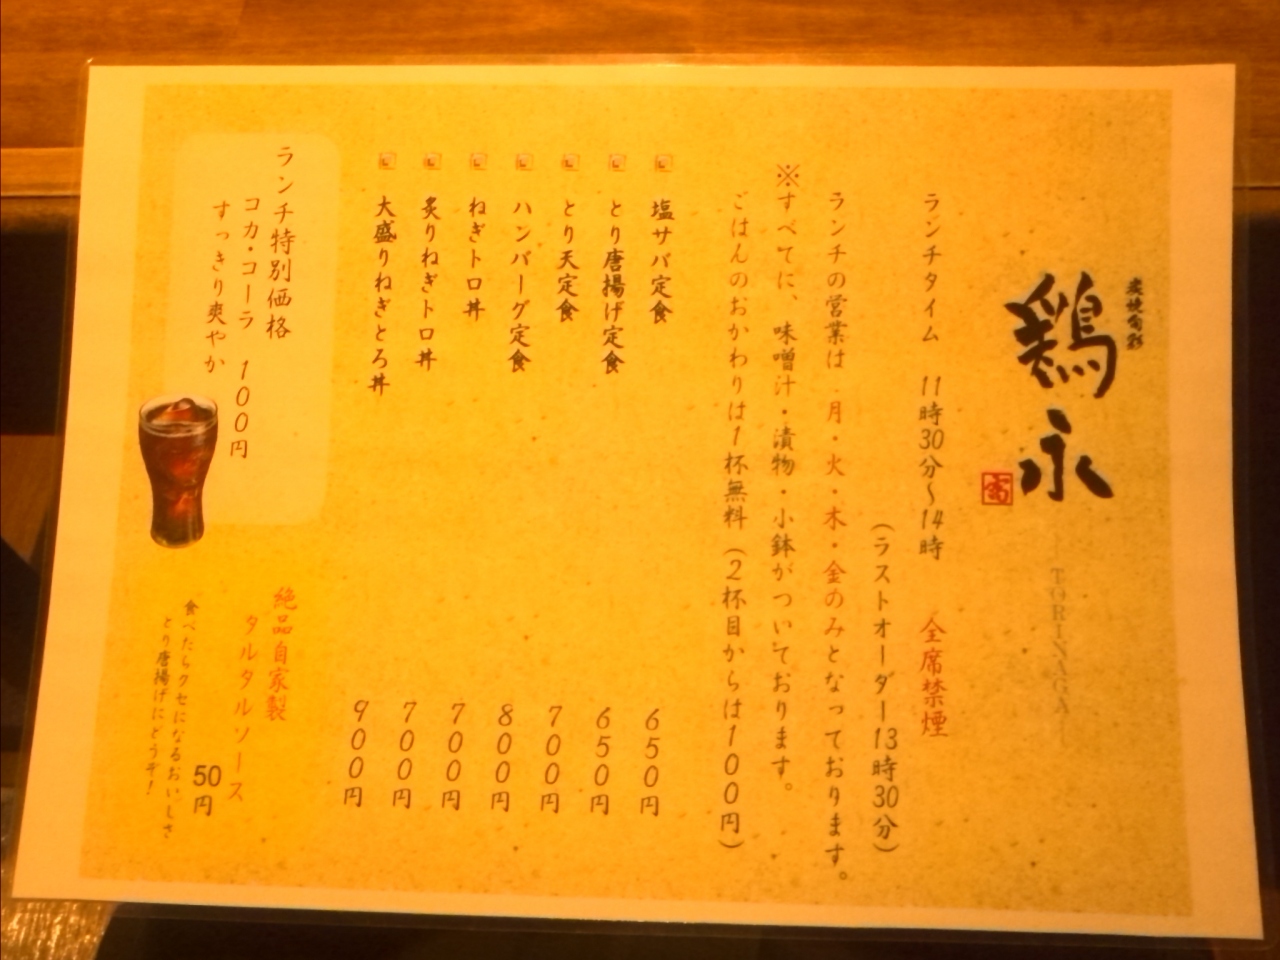 炭焼旬彩
鶏永
TORINAGA
ランチタイム 11時30分~14時 全席禁煙
(ラストオーダー13時30分)
ランチの営業は 月・火・木・金のみとなっております。
※すべてに、味噌汁・漬物・小鉢がついております。
ごはんのおかわりは1杯無料(2杯目からは100円)
塩サバ定食 650円
とり唐揚げ定食 650円
とり天定食 700円
ハンバーグ定食 800円
ねぎトロ丼 700円
炙りねぎトロ丼 700円
大盛りねぎとろ丼 900円
ランチ特別価格
コカ・コーラ 100円
すっきり爽やか
絶品自家製
タルタルソース
50円
食べたらクセになるおいしさ
とり唐揚げにどうぞ!